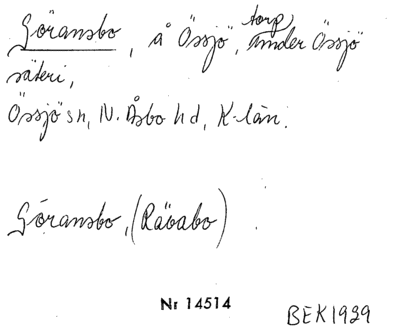 Göransbo, å Össjö, torp under Össjö
säteri,
Össjö sn, N. Åsbo hd, K-län.
Göransbo, (Rävabo)
Nr 14514
BEK1929